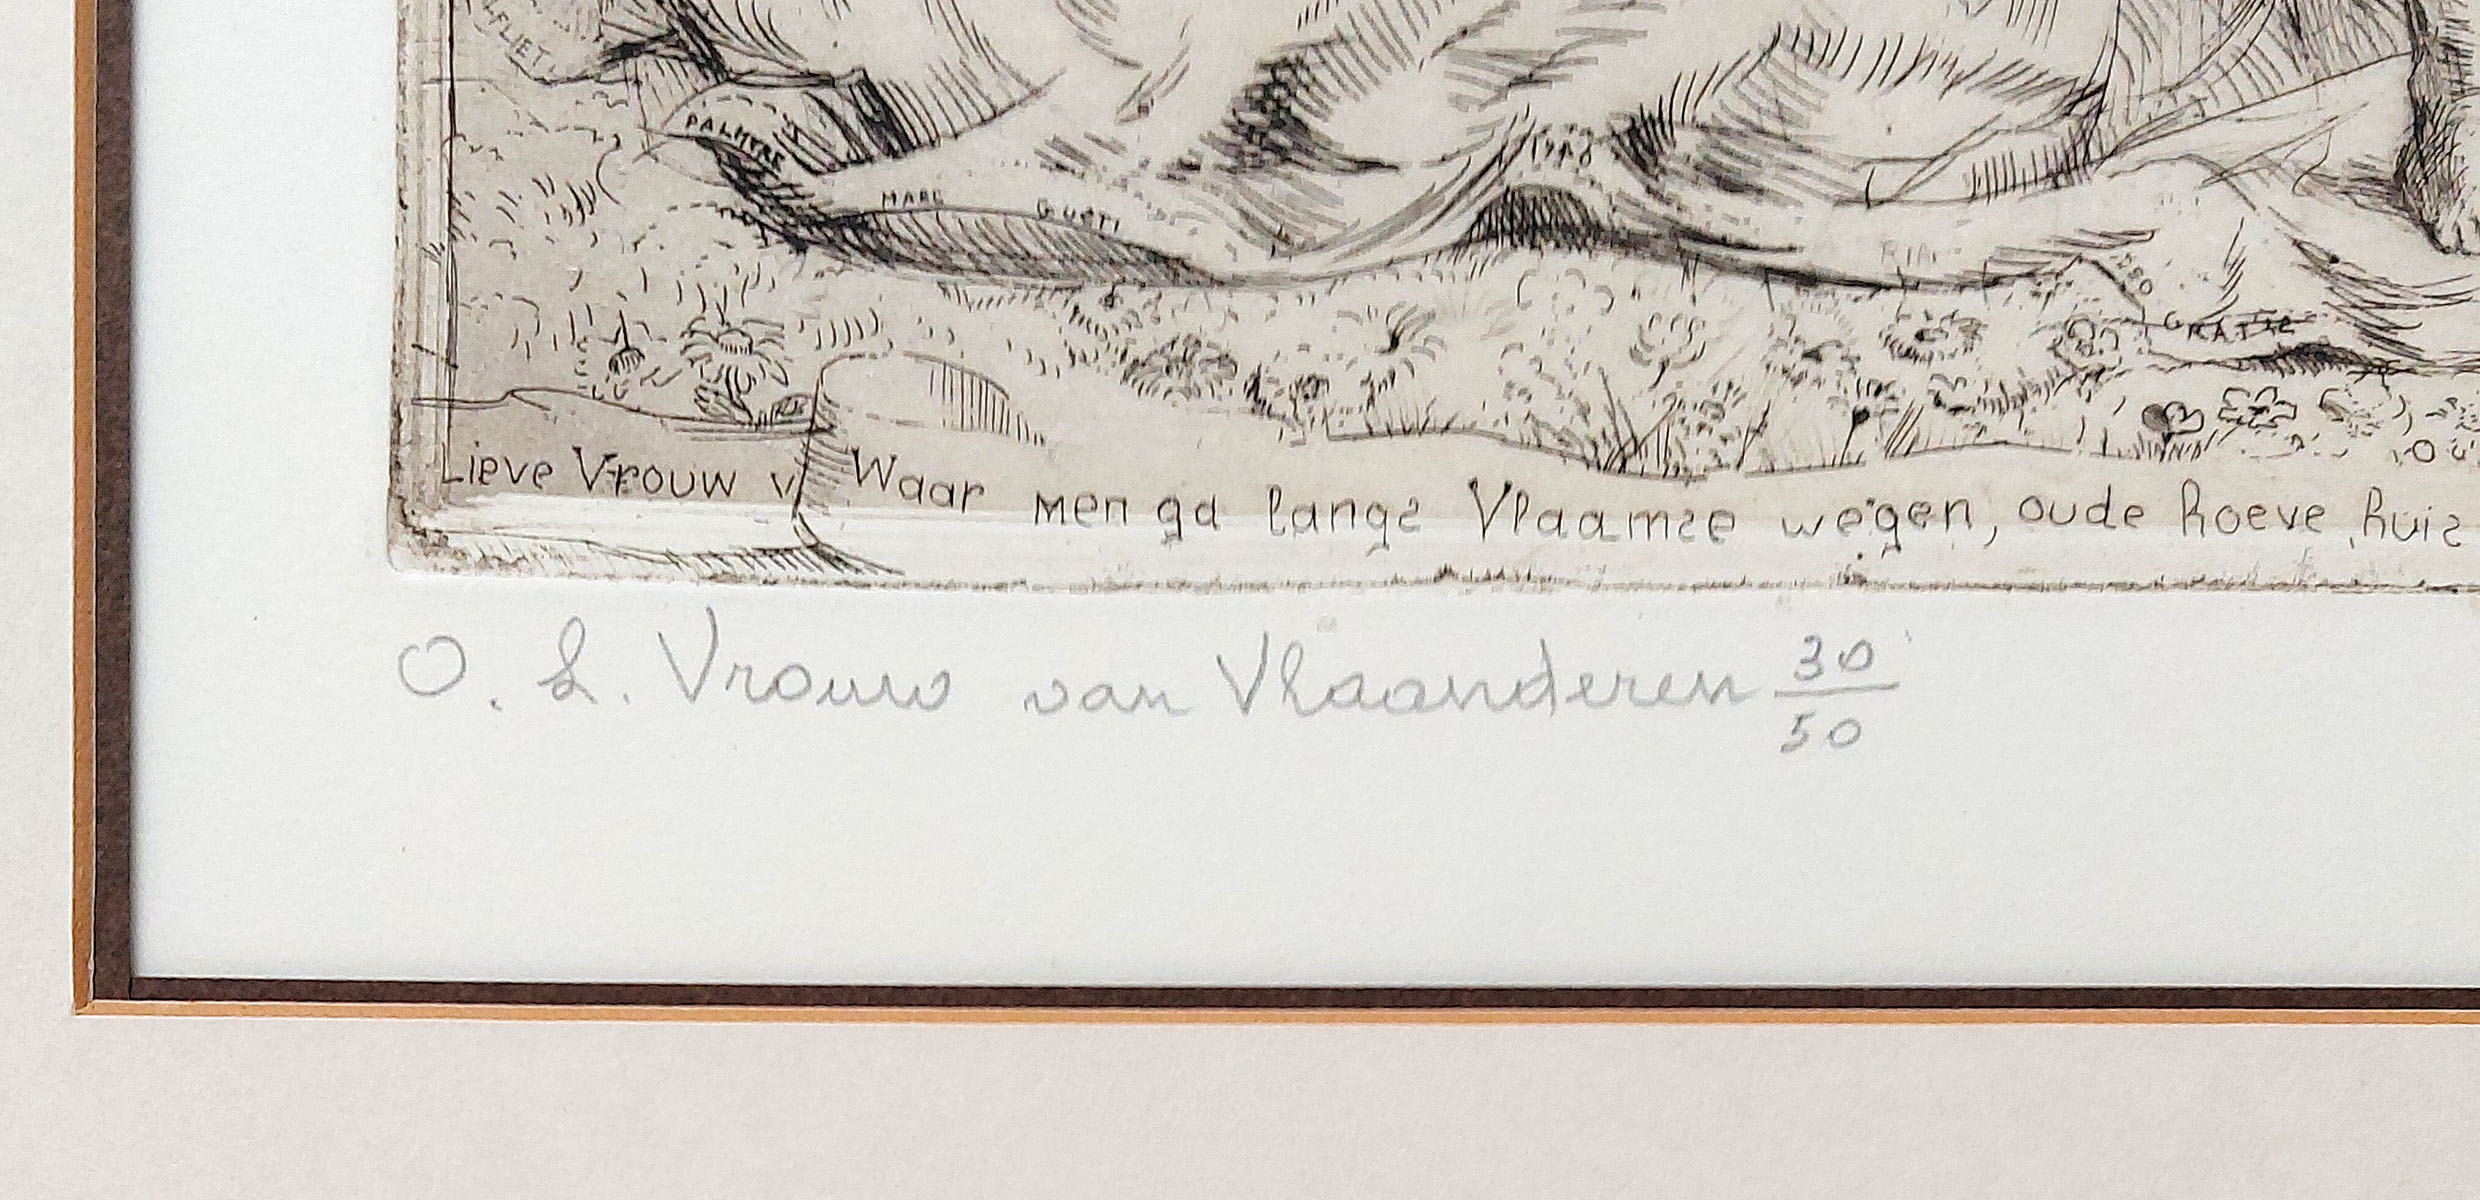 FLIET
PALMYRE
MARC GUSTI
RIA
GRATIE
Lieve Vrouw v Waar men ga langs Vlaamse wegen, oude hoeve, huis
O. L. Vrouw van Vlaanderen 30/50